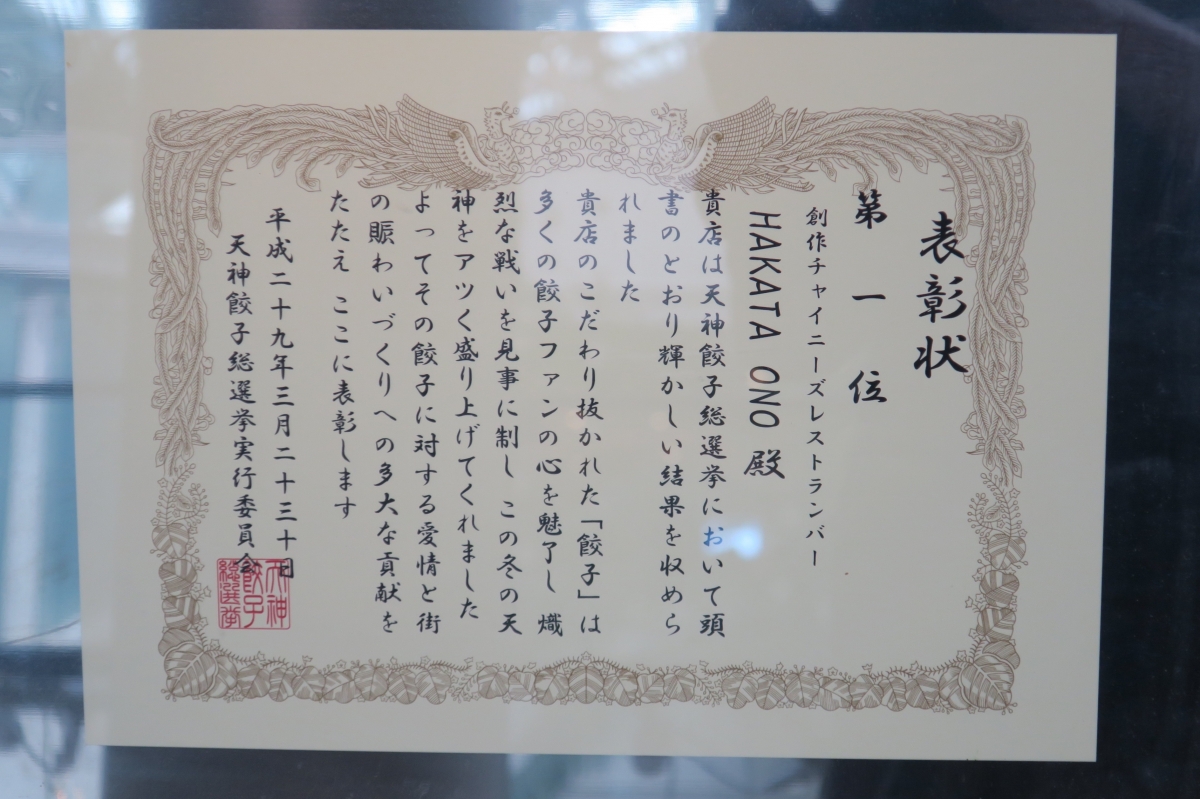 表彰状
第一位
創作チャイニーズレストランバー
HAKATA ONO 殿
貴店は天神餃子総選挙において頭
書のとおり輝かしい結果を収めら
れました
貴店のこだわり抜かれた「餃子」は
多くの餃子ファンの心を魅了し 熾
烈な戦いを見事に制し この冬の天
神をアツく盛り上げてくれました
よってその餃子に対する愛情と街
の賑わいづくりへの多大な貢献を
たたえ ここに表彰します
平成二十九年三月二十三十日
天神餃子総選挙実行委員会
天神
餃子
総選挙